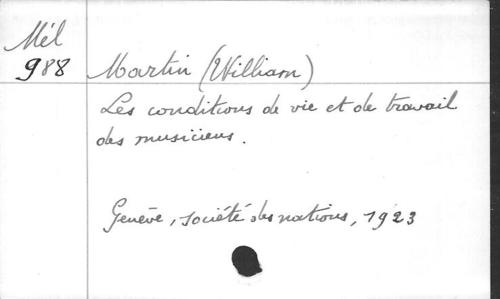 Mél
988
Martin (William)
Les conditions de vie et de travail
des musiciens.
Genève, société des nations, 1923